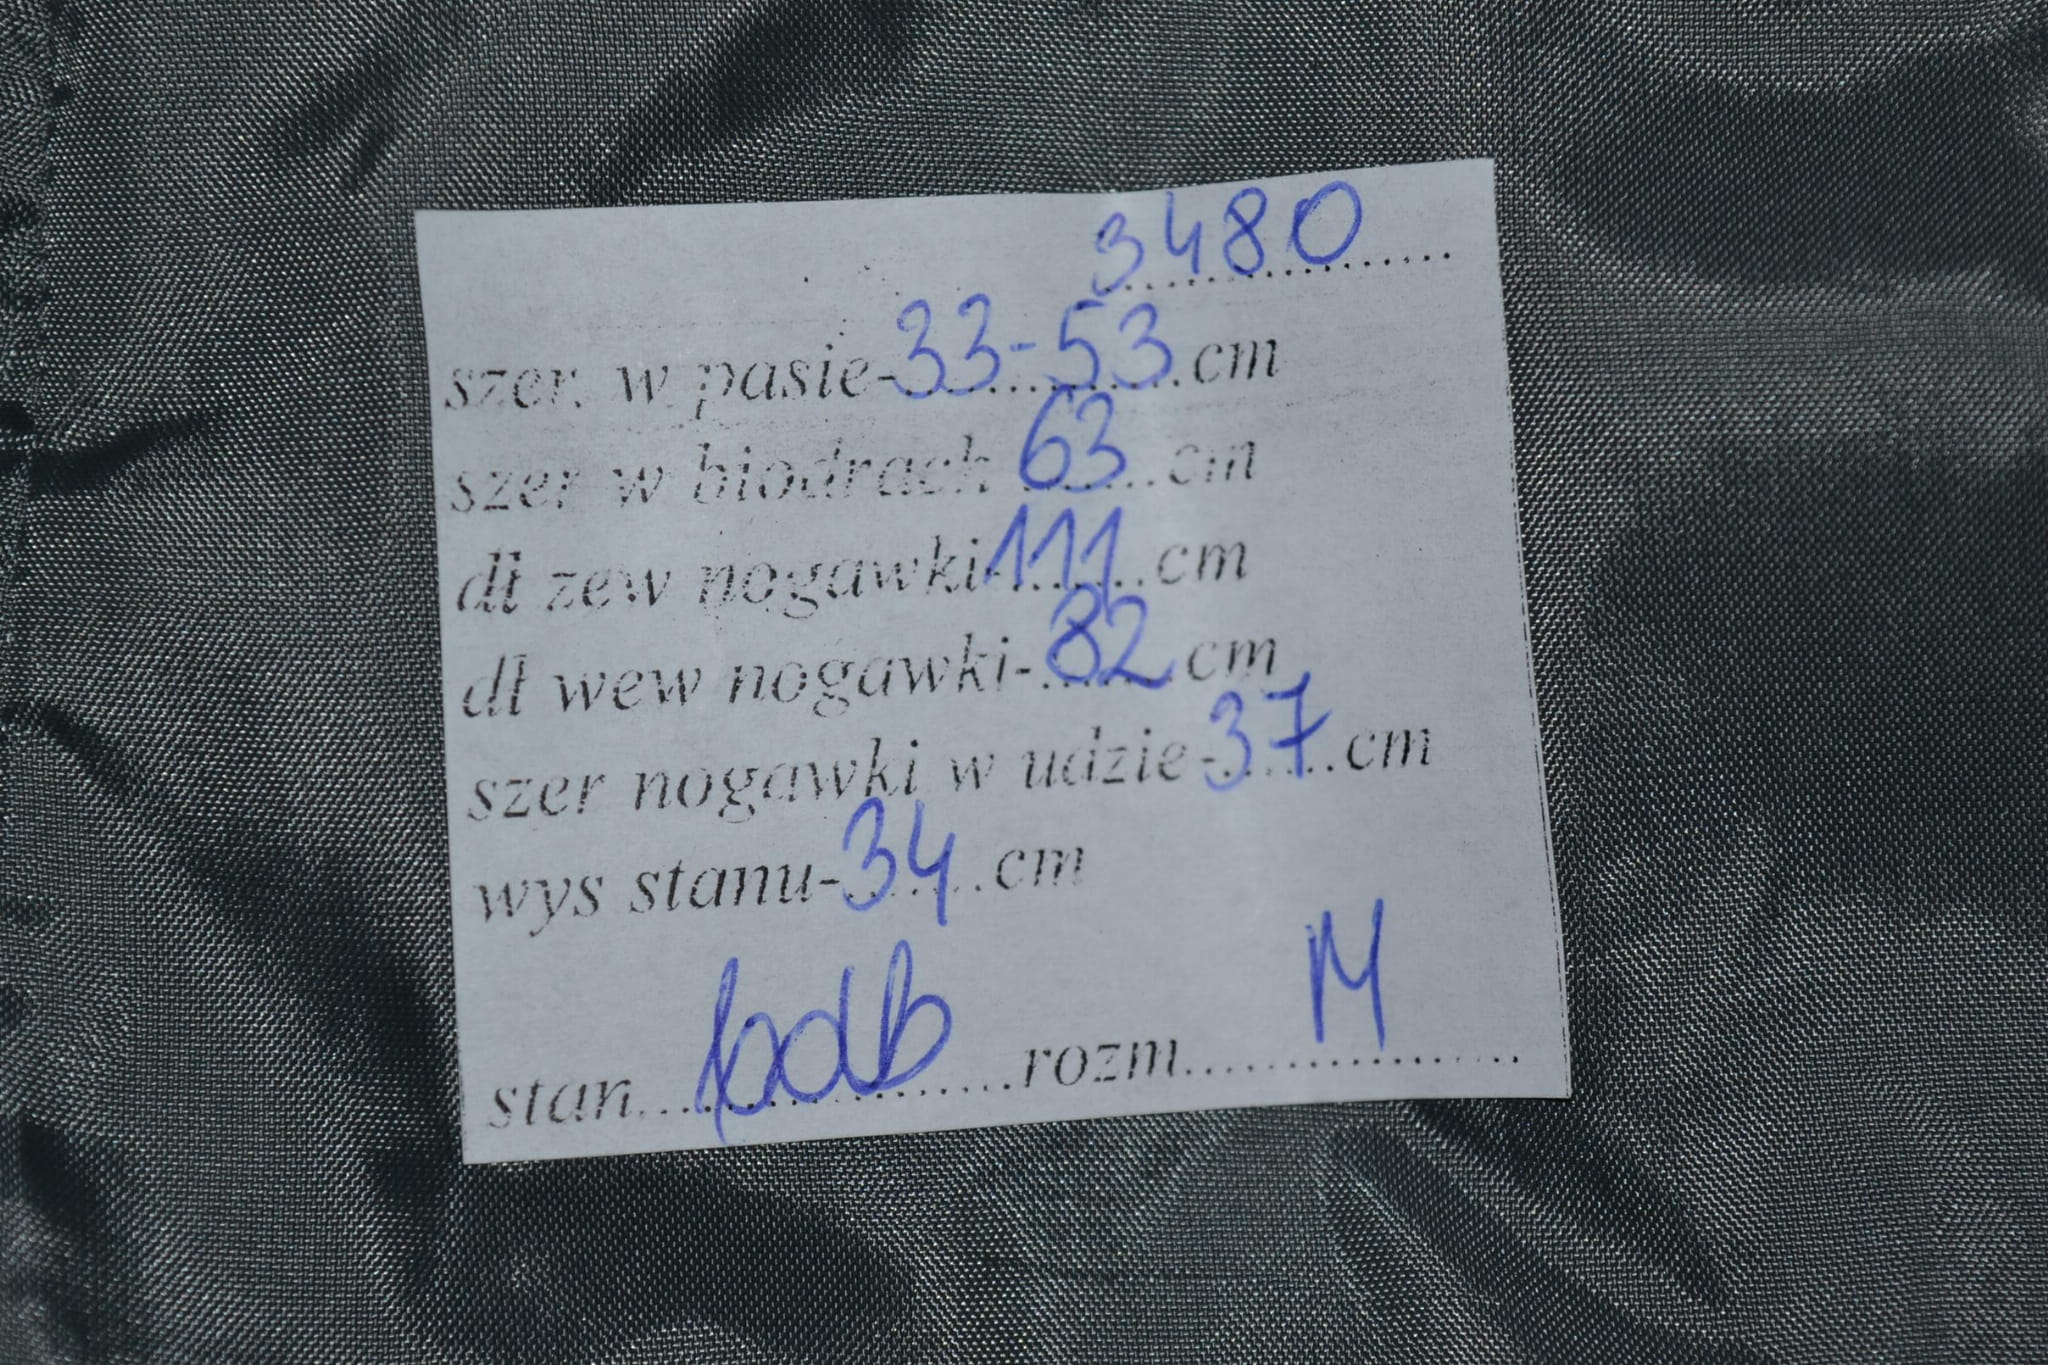 3480
szer. w pasie-33-53 cm
szer w biodrach 63 cm
dł zew nogawki-111 cm
dł wew nogawki-82 cm
szer nogawki w udzie-37 cm
wys stanu-34 cm
stan bdb rozm M